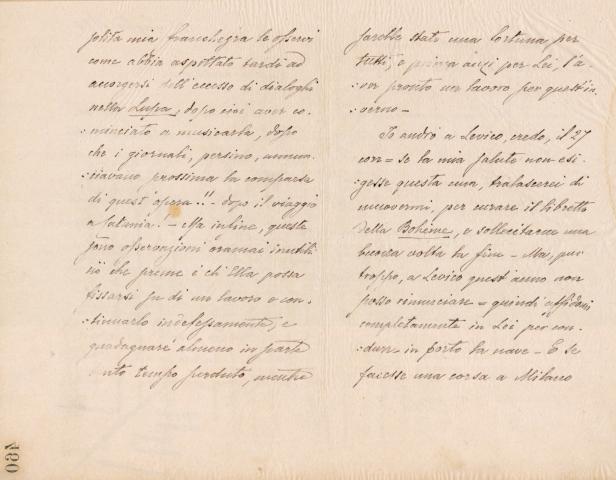 solita mia franchezza le osservi
come abbia aspettato tardi ad
accorgersi dell'eccesso di dialoghi
nella Lupa, dopo cioè aver co-
minciato a musicarla, dopo
che i giornali, persino, annun-
:ciavano prossima la comparsa
di quest'opera!! - dopo il viaggio
a Catania! - Ma infine, queste
sono osservazioni oramai inutili
ciò che preme è ch'Ella possa
fissarsi su di un lavoro e con-
:tinuarlo indefessamente, e
guadagnare almeno in parte
tanto tempo perduto, mentre
sarebbe stata una fortuna per
tutti, e prima anzi per Lei, l'a-
ver pronto un lavoro per quest'in-
:verno -
Io andrò a Levico, credo, il 27
corr = se la mia salute non esi-
gesse questa cura, tralascerei di
muovermi, per curare il libretto
della Bohème, e sollecitarne una
buona volta la fine - Ma, pur
troppo, a Levico quest'anno non
posso rinunciare = quindi affidomi
completamente in Lei per con-
:durre in porto la nave - E se
facesse una corsa a Milano
460